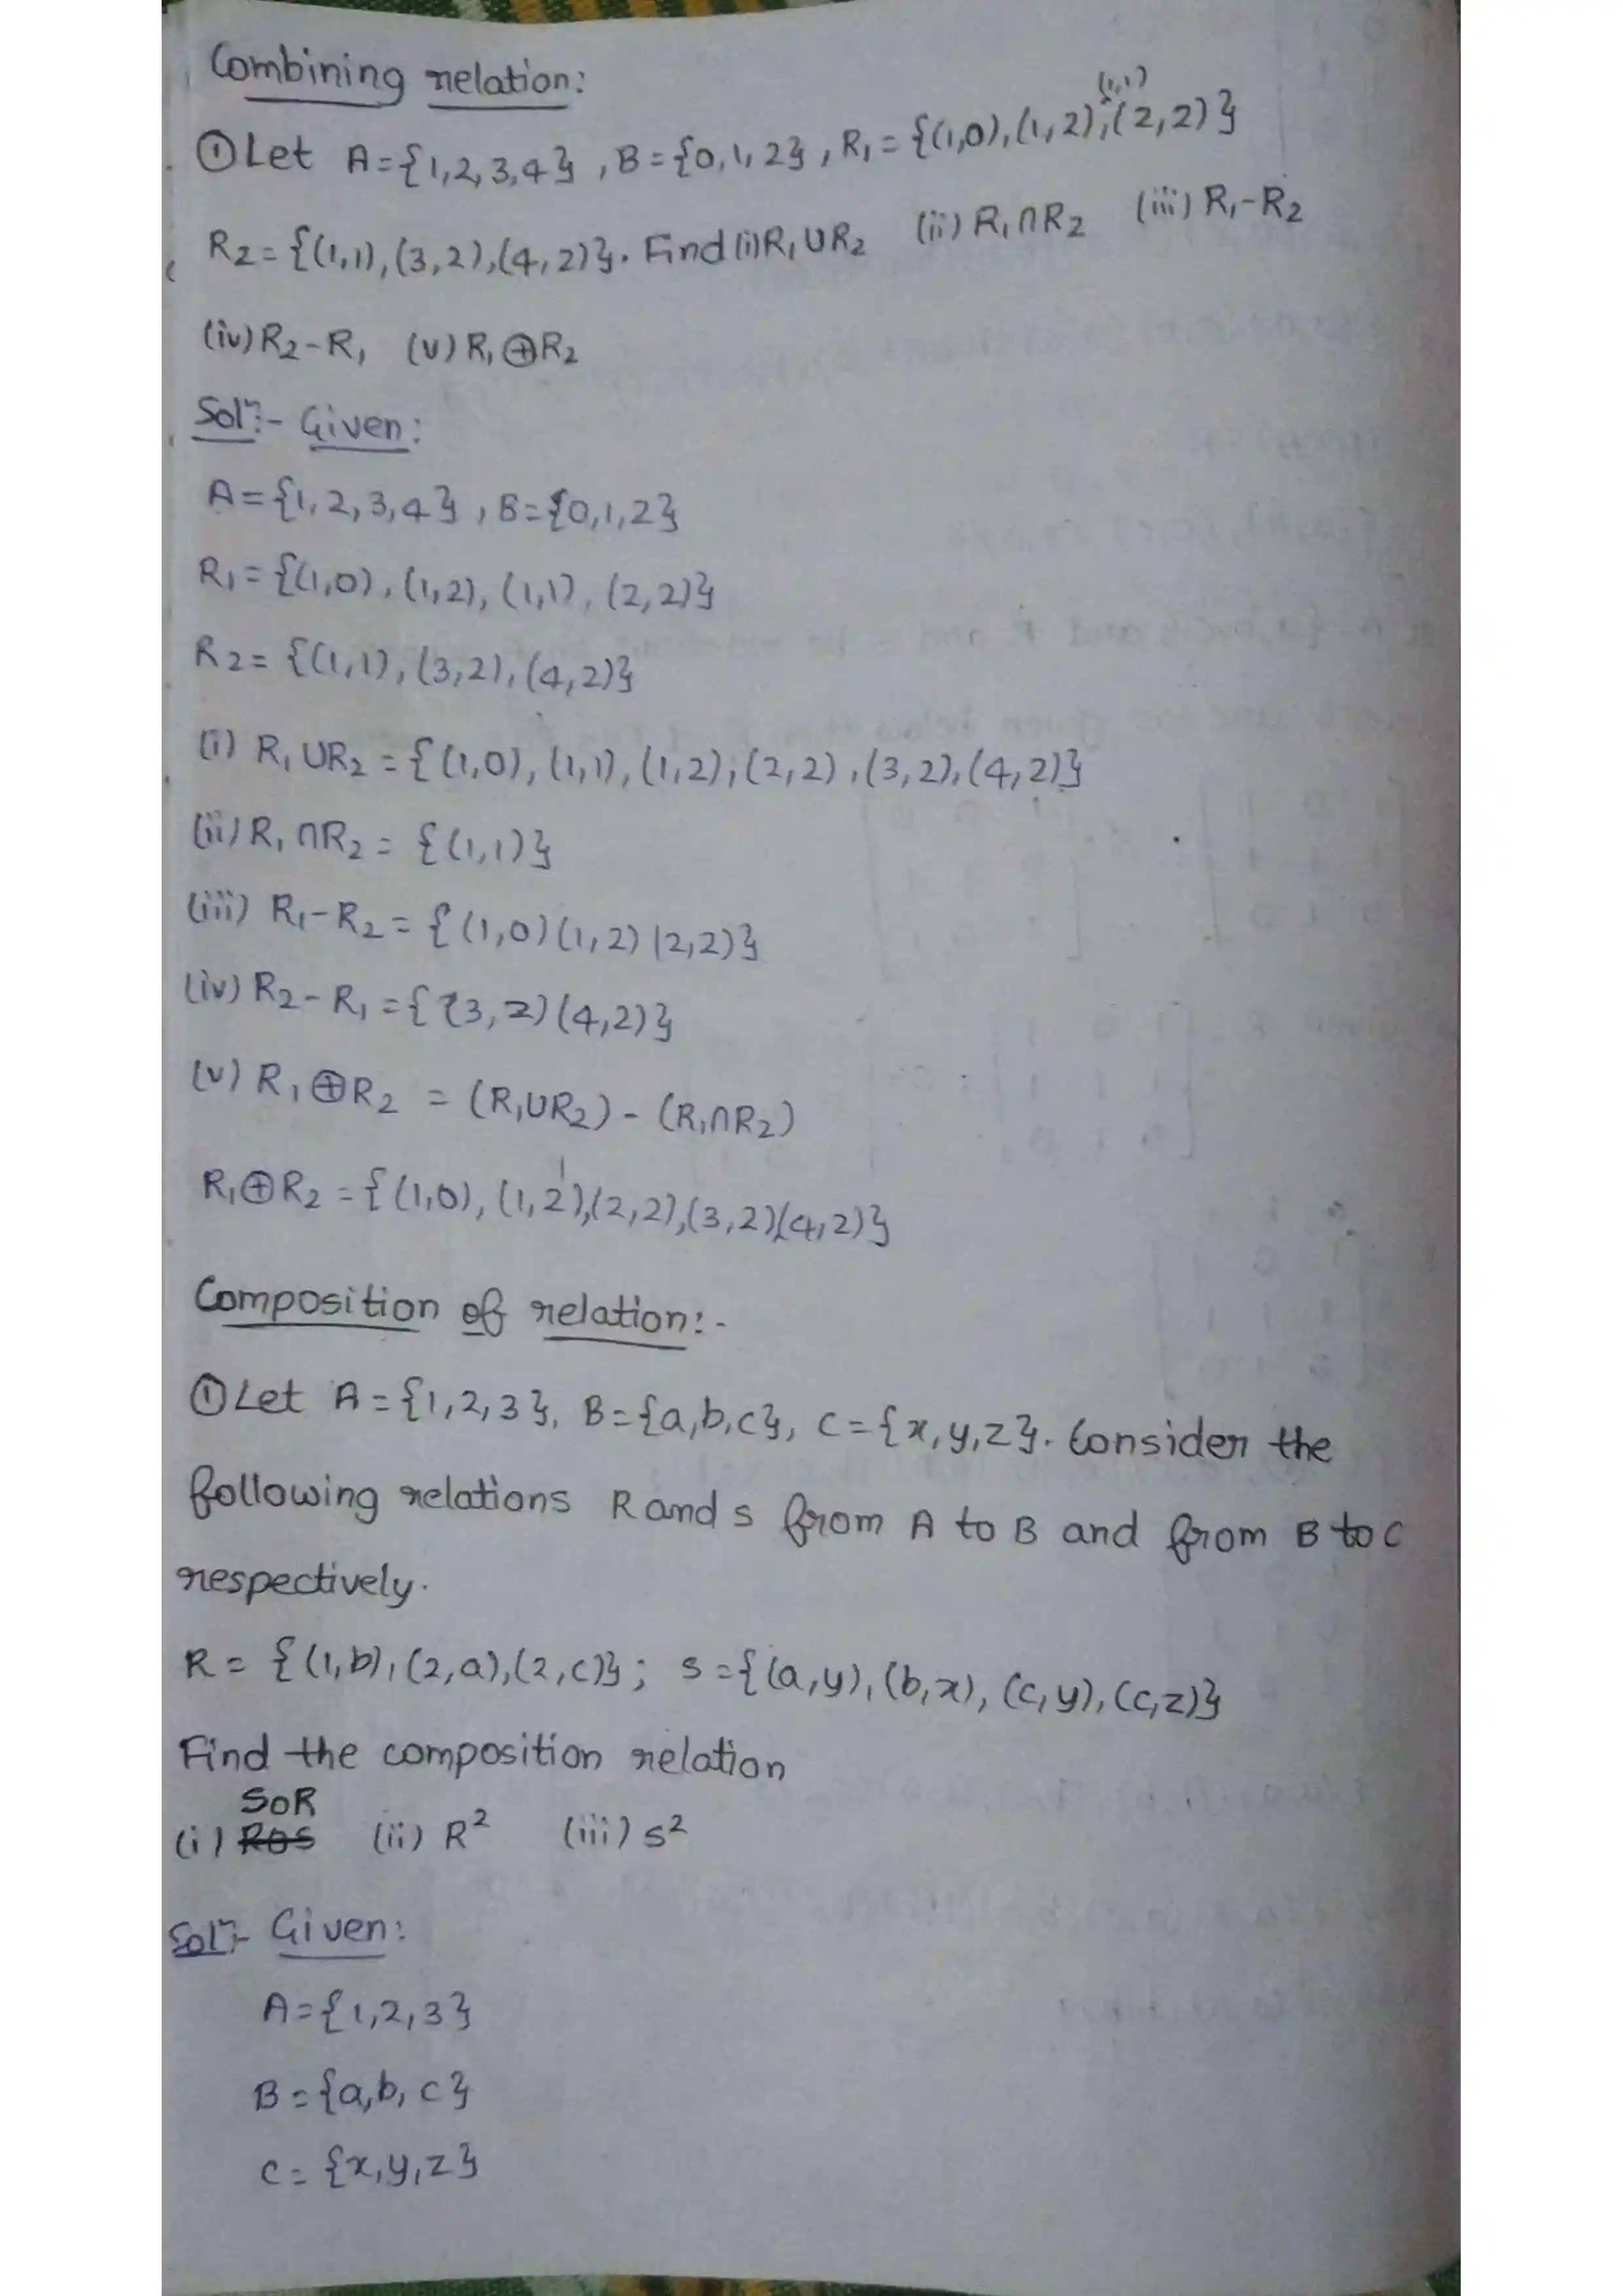 Combining relation:
(1,1)
① Let A={1,2,3,4}, B={0,1,2}, R₁={(1,0),(1,2),(2,2)}
R₂={(1,1),(3,2),(4,2)}. Find (i)R₁∪R₂ (ii) R₁∩R₂ (iii) R₁-R₂
(iv) R₂-R₁ (v) R₁⊕R₂
Solⁿ:- Given:
A={1,2,3,4}, B={0,1,2}
R₁={(1,0),(1,2),(1,1),(2,2)}
R₂={(1,1),(3,2),(4,2)}
(i) R₁∪R₂={(1,0),(1,1),(1,2),(2,2),(3,2),(4,2)}
(ii) R₁∩R₂={(1,1)}
(iii) R₁-R₂={(1,0)(1,2)(2,2)}
(iv) R₂-R₁={(3,2)(4,2)}
(v) R₁⊕R₂ = (R₁∪R₂)-(R₁∩R₂)
R₁⊕R₂={(1,0),(1,2),(2,2),(3,2)(4,2)}
Composition of relation:-
① Let A={1,2,3}, B={a,b,c}, C={x,y,z}. Consider the
following relations R and S from A to B and from B to C
respectively.
R={(1,b),(2,a),(2,c)}; S={(a,y),(b,x),(c,y),(c,z)}
Find the composition relation
SoR
(i) RoS (ii) R² (iii) S²
Solⁿ:- Given:
A={1,2,3}
B={a,b,c}
C={x,y,z}